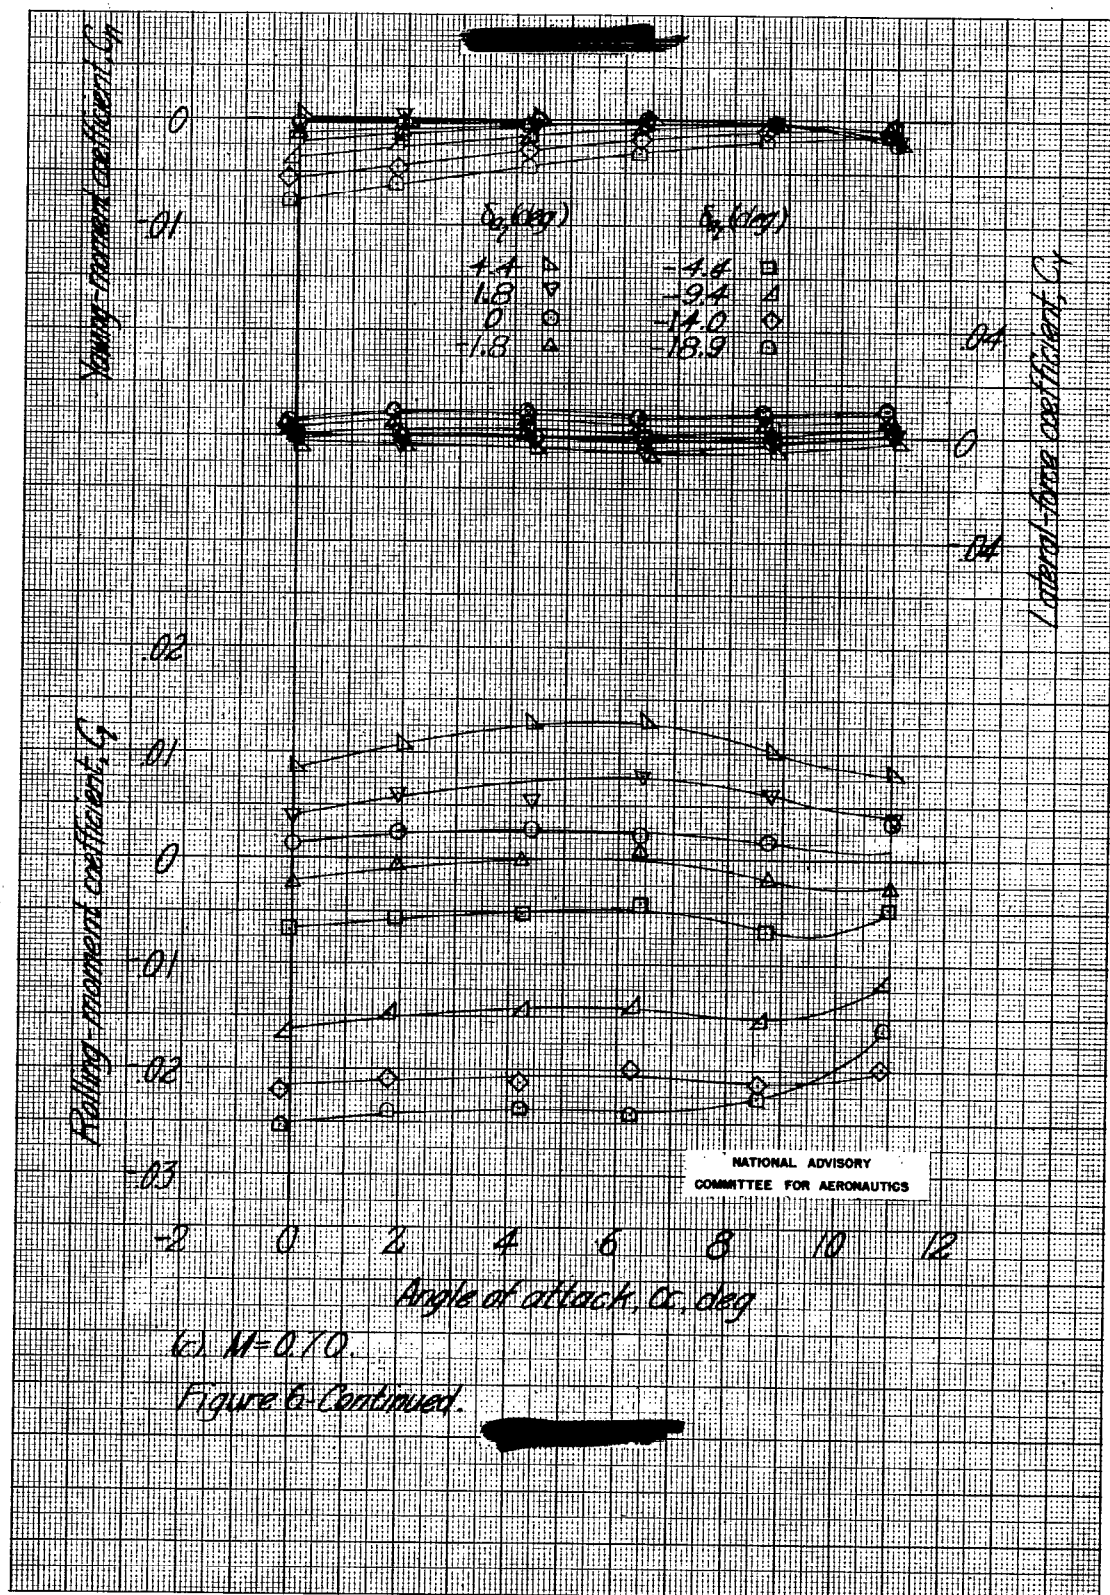 Yawing-moment coefficient, Cn
0
-.01
δa, (deg) δa, (deg)
4.4 -4.4
1.8 -9.4
0 -14.0
-1.8 -18.9
Lateral-force coefficient, CY
.04
0
-.04
Rolling-moment coefficient, Cl
.02
.01
0
-.01
-.02
-.03
NATIONAL ADVISORY
COMMITTEE FOR AERONAUTICS
-2 0 2 4 6 8 10 12
Angle of attack, α, deg
(c) M=0.70.
Figure 6-Continued.